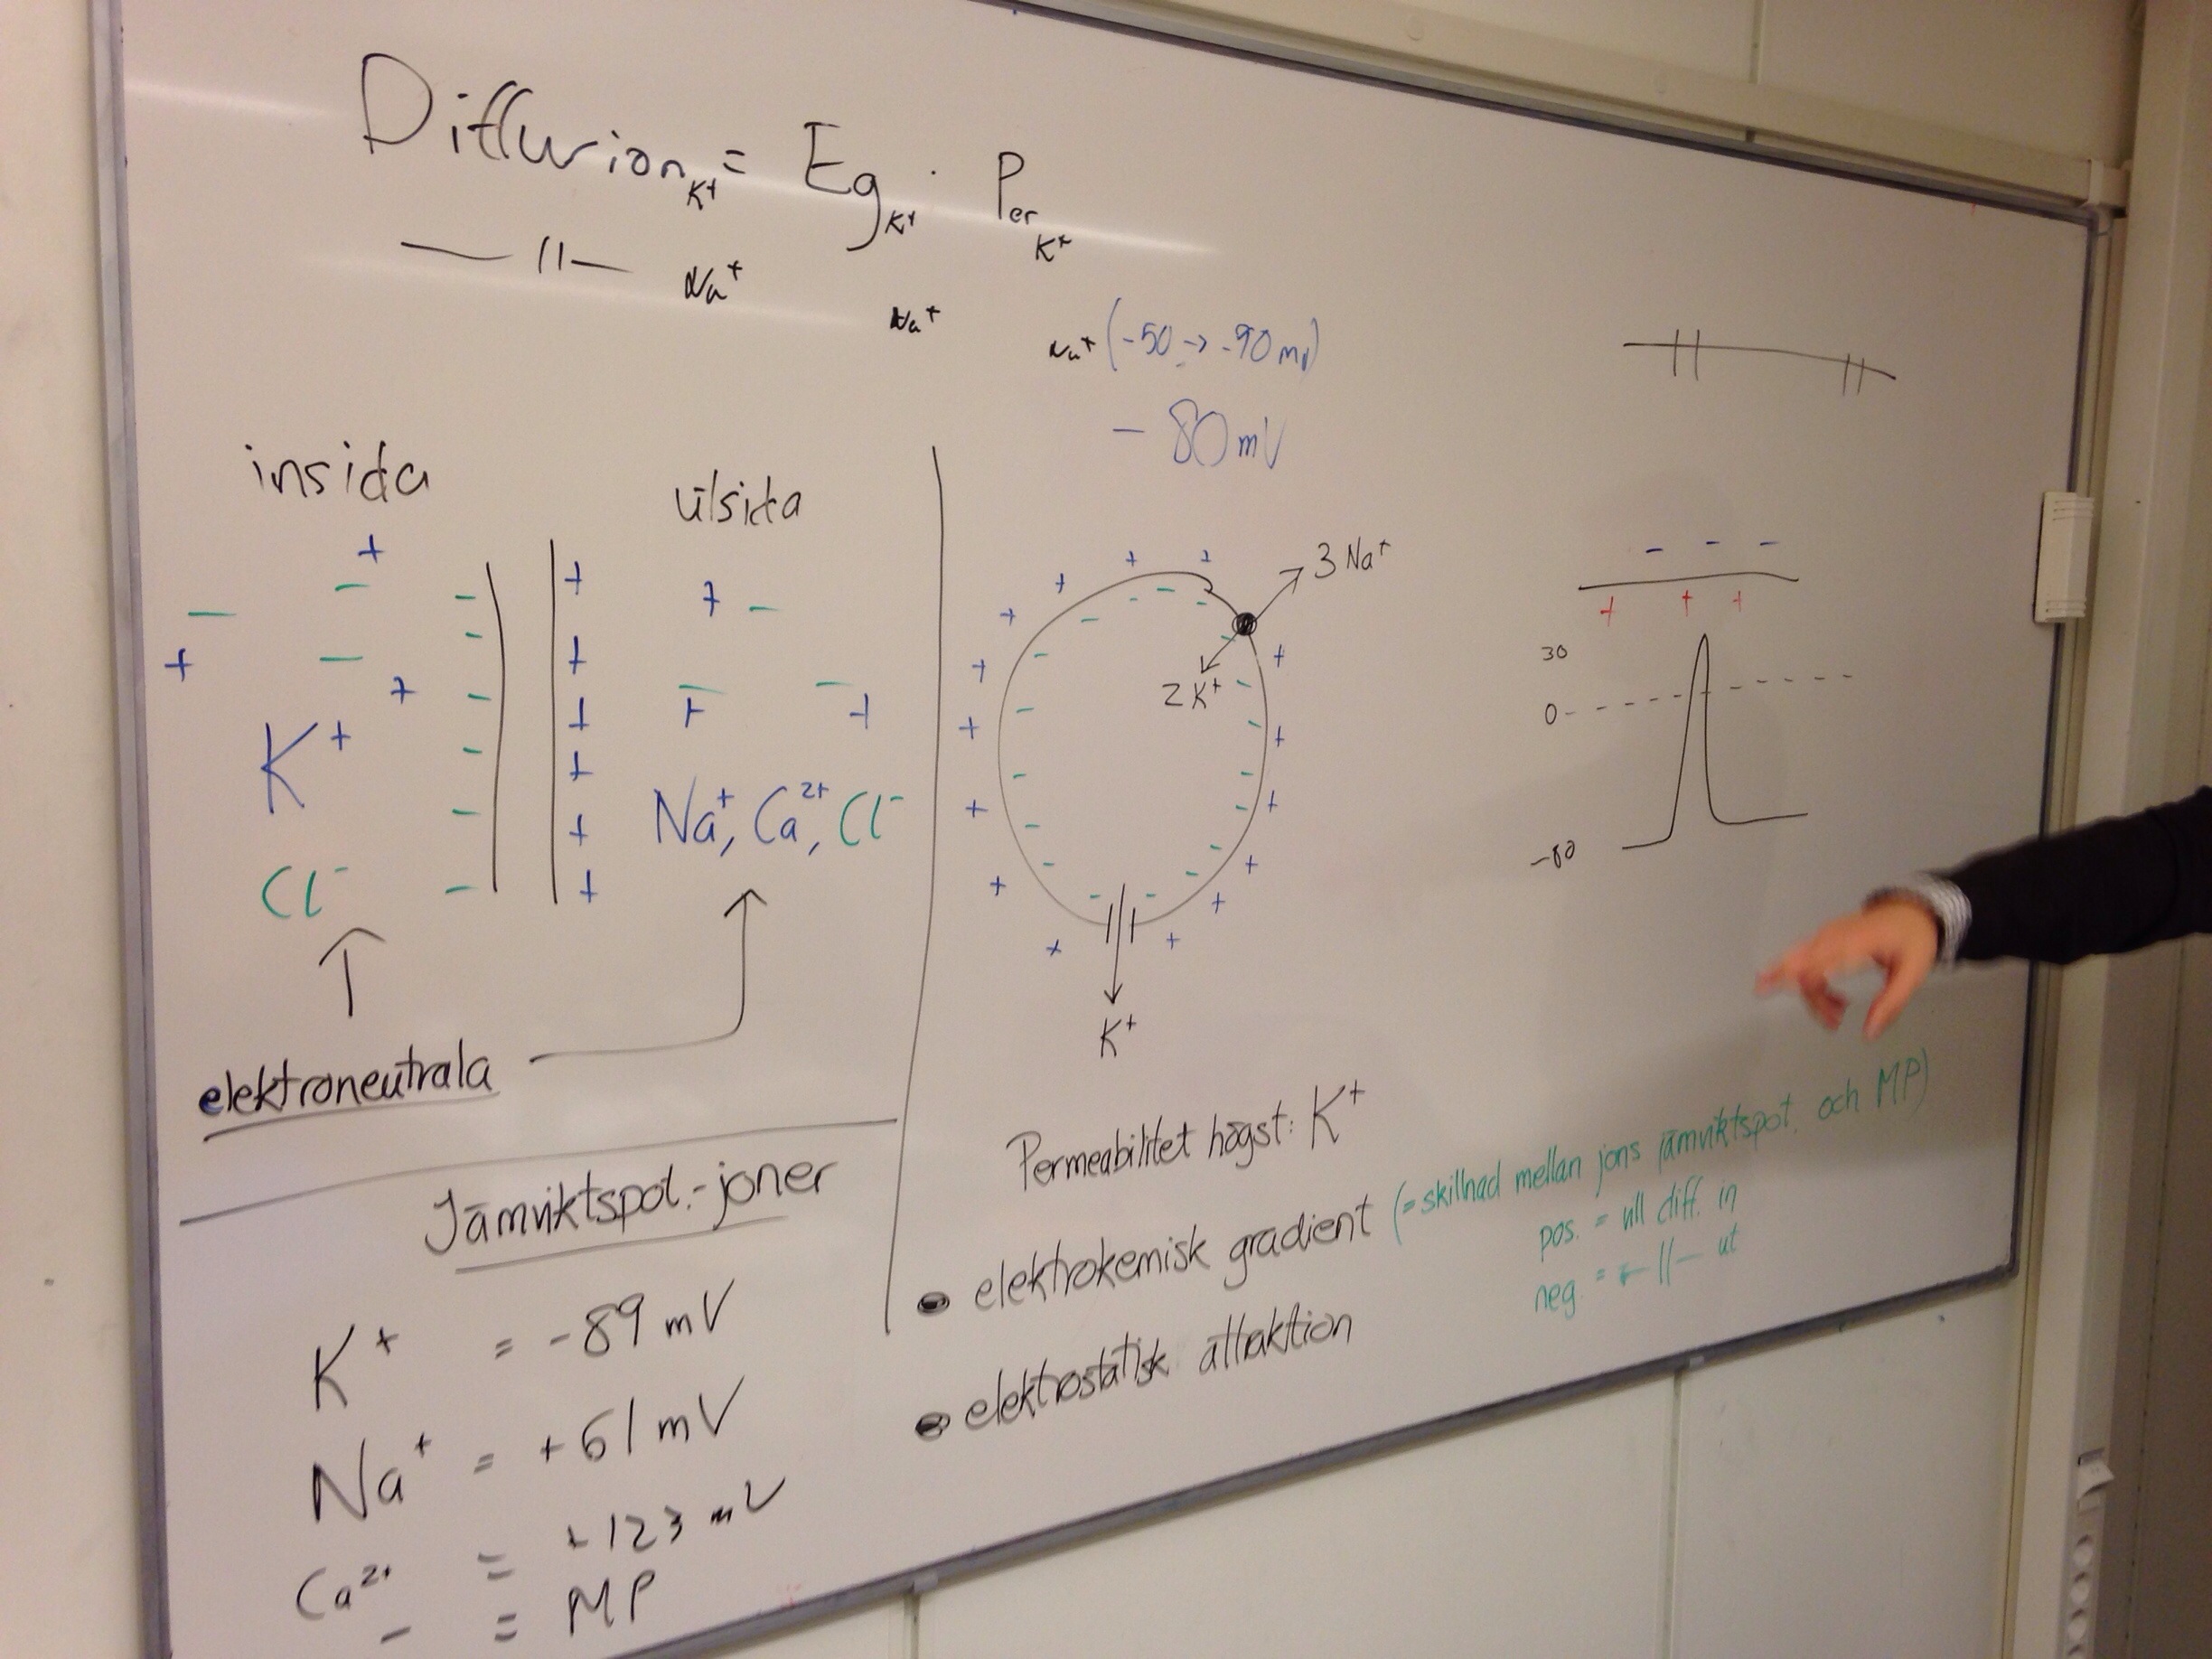 Diffusion K+ = Eg K+ · Per K+
— || — Na+ Na+ Na+
(-50 -> -90 mV)
- 80 mV
insida
utsida
K+
Cl-
Na+, Ca2+, Cl-
elektroneutrala
3 Na+
2 K+
K+
- - -
+ + +
30
0
-80
Jämviktspot.-joner
K+ = -89 mV
Na+ = +61 mV
Ca2+ = +123 mV
= MP
Permeabilitet högst: K+
• elektrokemisk gradient (= skillnad mellan jons jämviktspot. och MP)
pos. = vill diff. in
neg. = — || — ut
• elektrostatisk attraktion